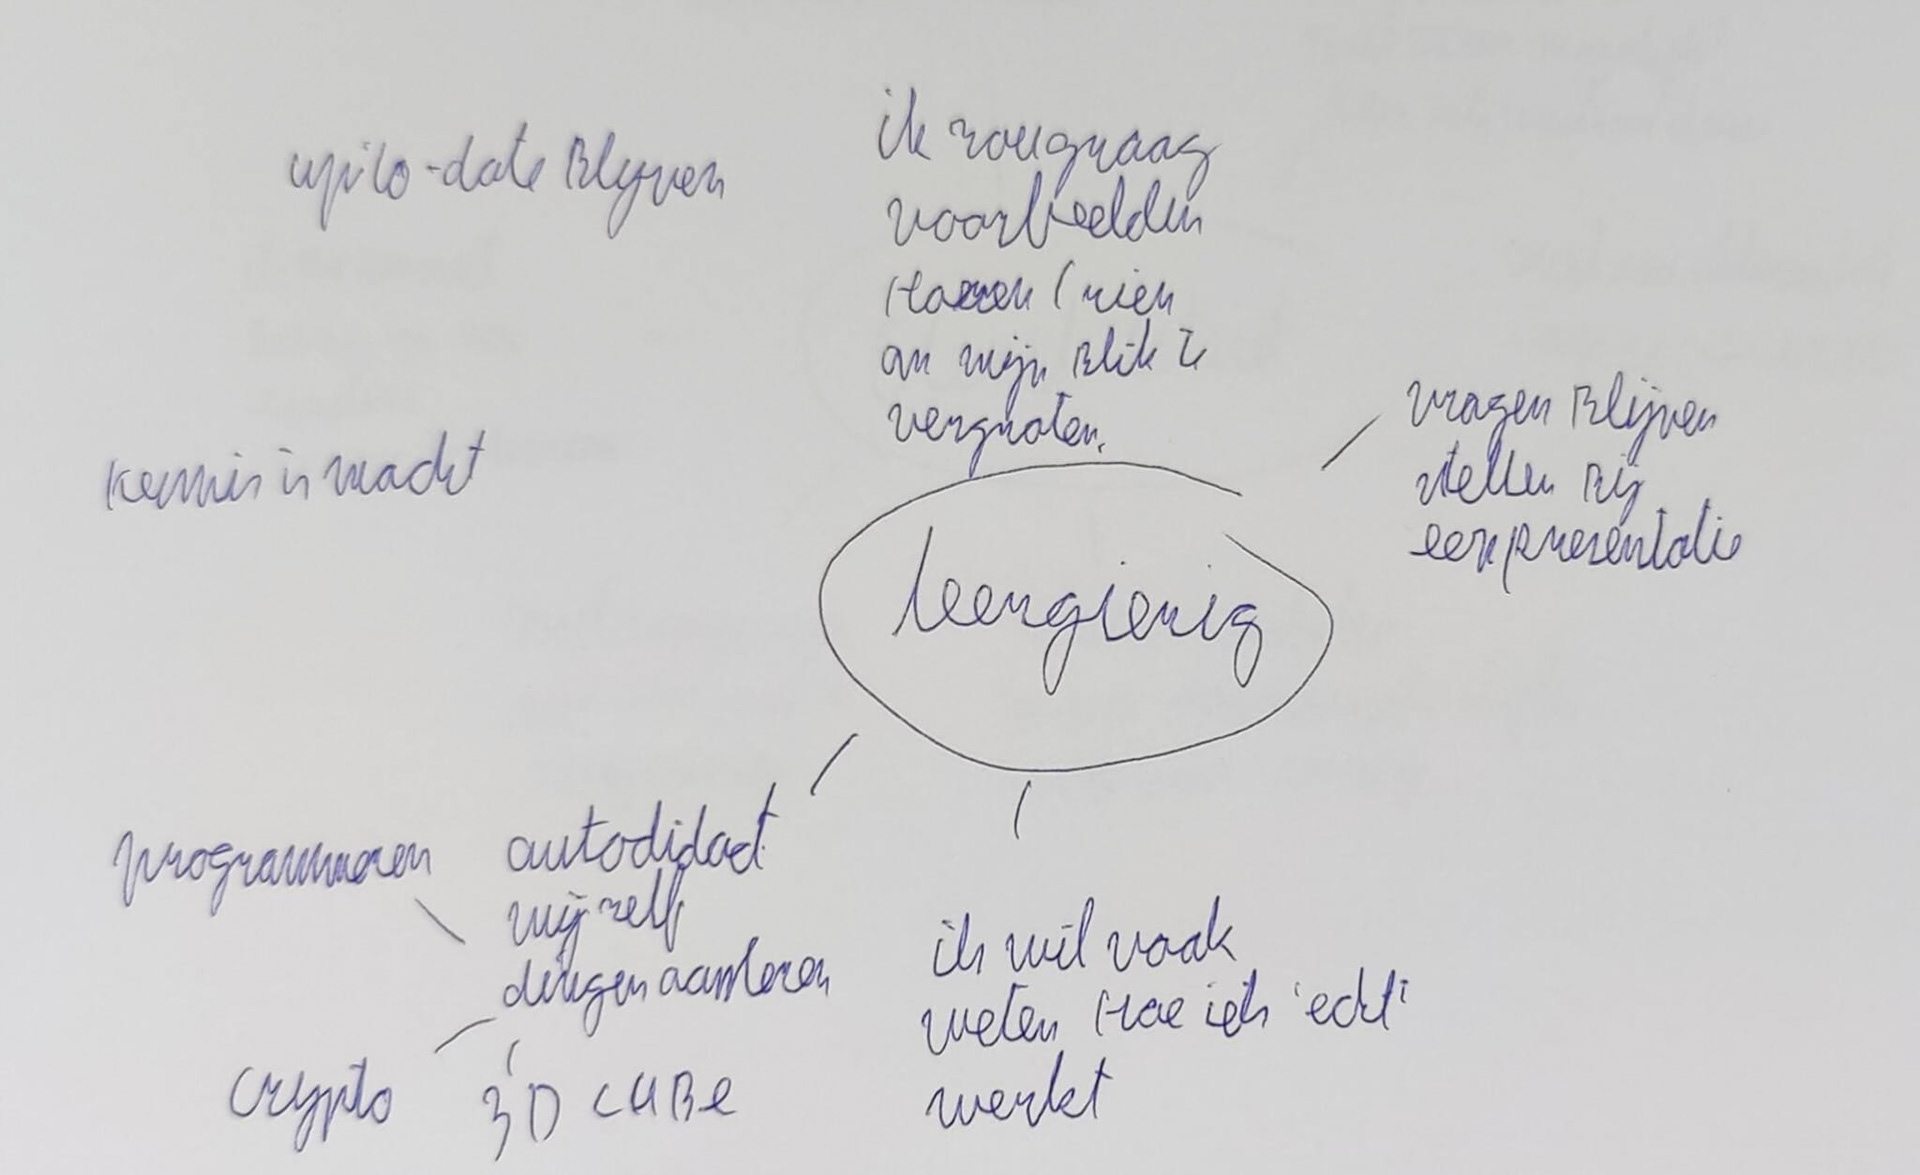 up to-date Blijven
ik zou graag
voorbeelden
Horen / zien
om mijn Blik te
vergroten.
vragen Blijven
stellen Bij
een presentatie
kennis is macht
leergierig
programmeren
autodidact
mijzelf
dingen aanleren
crypto
3D CUBE
ik wil vaak
weten Hoe iets 'echt'
werkt